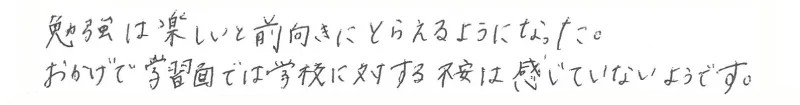 勉強は楽しいと前向きにとらえるようになった。
おかげで学習面では学校に対する不安は感じていないようです。